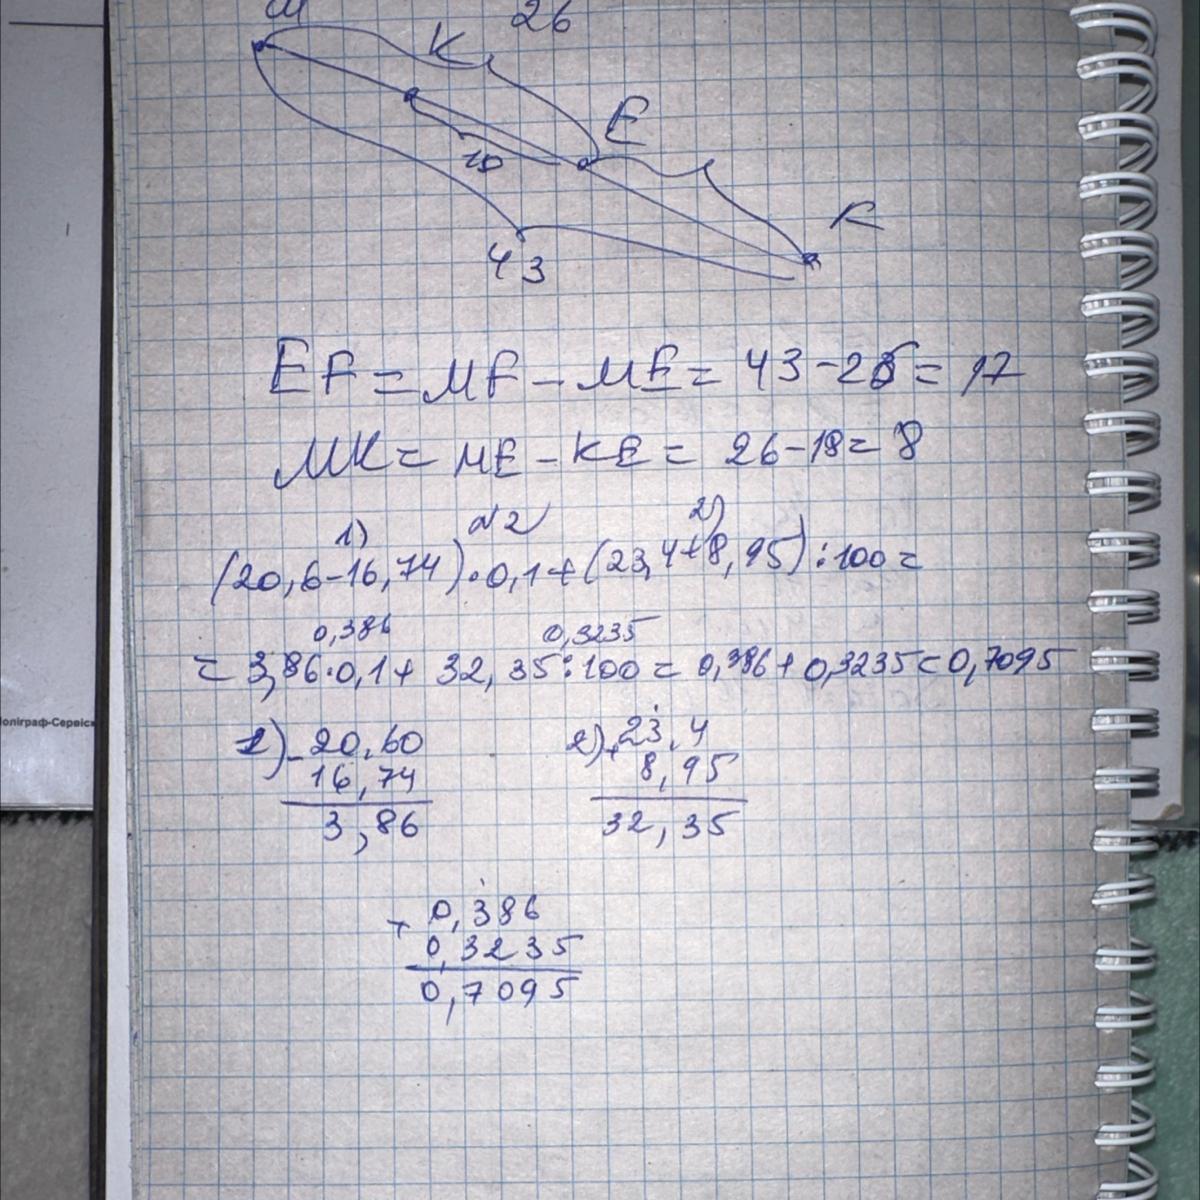 M 26
K
E
18
F
43
EF = MF - ME = 43 - 26 = 17
MK = ME - KE = 26 - 18 = 8
№2
1) 2)
(20,6-16,74)·0,1+(23,4+8,95):100=
0,386 0,3235
= 3,86·0,1+ 32,35:100 = 0,386+0,3235=0,7095
1) - 20,60
16,74
3,86
2) + 23,4
8,95
32,35
+ 0,386
0,3235
0,7095
Поліграф-Сервіс